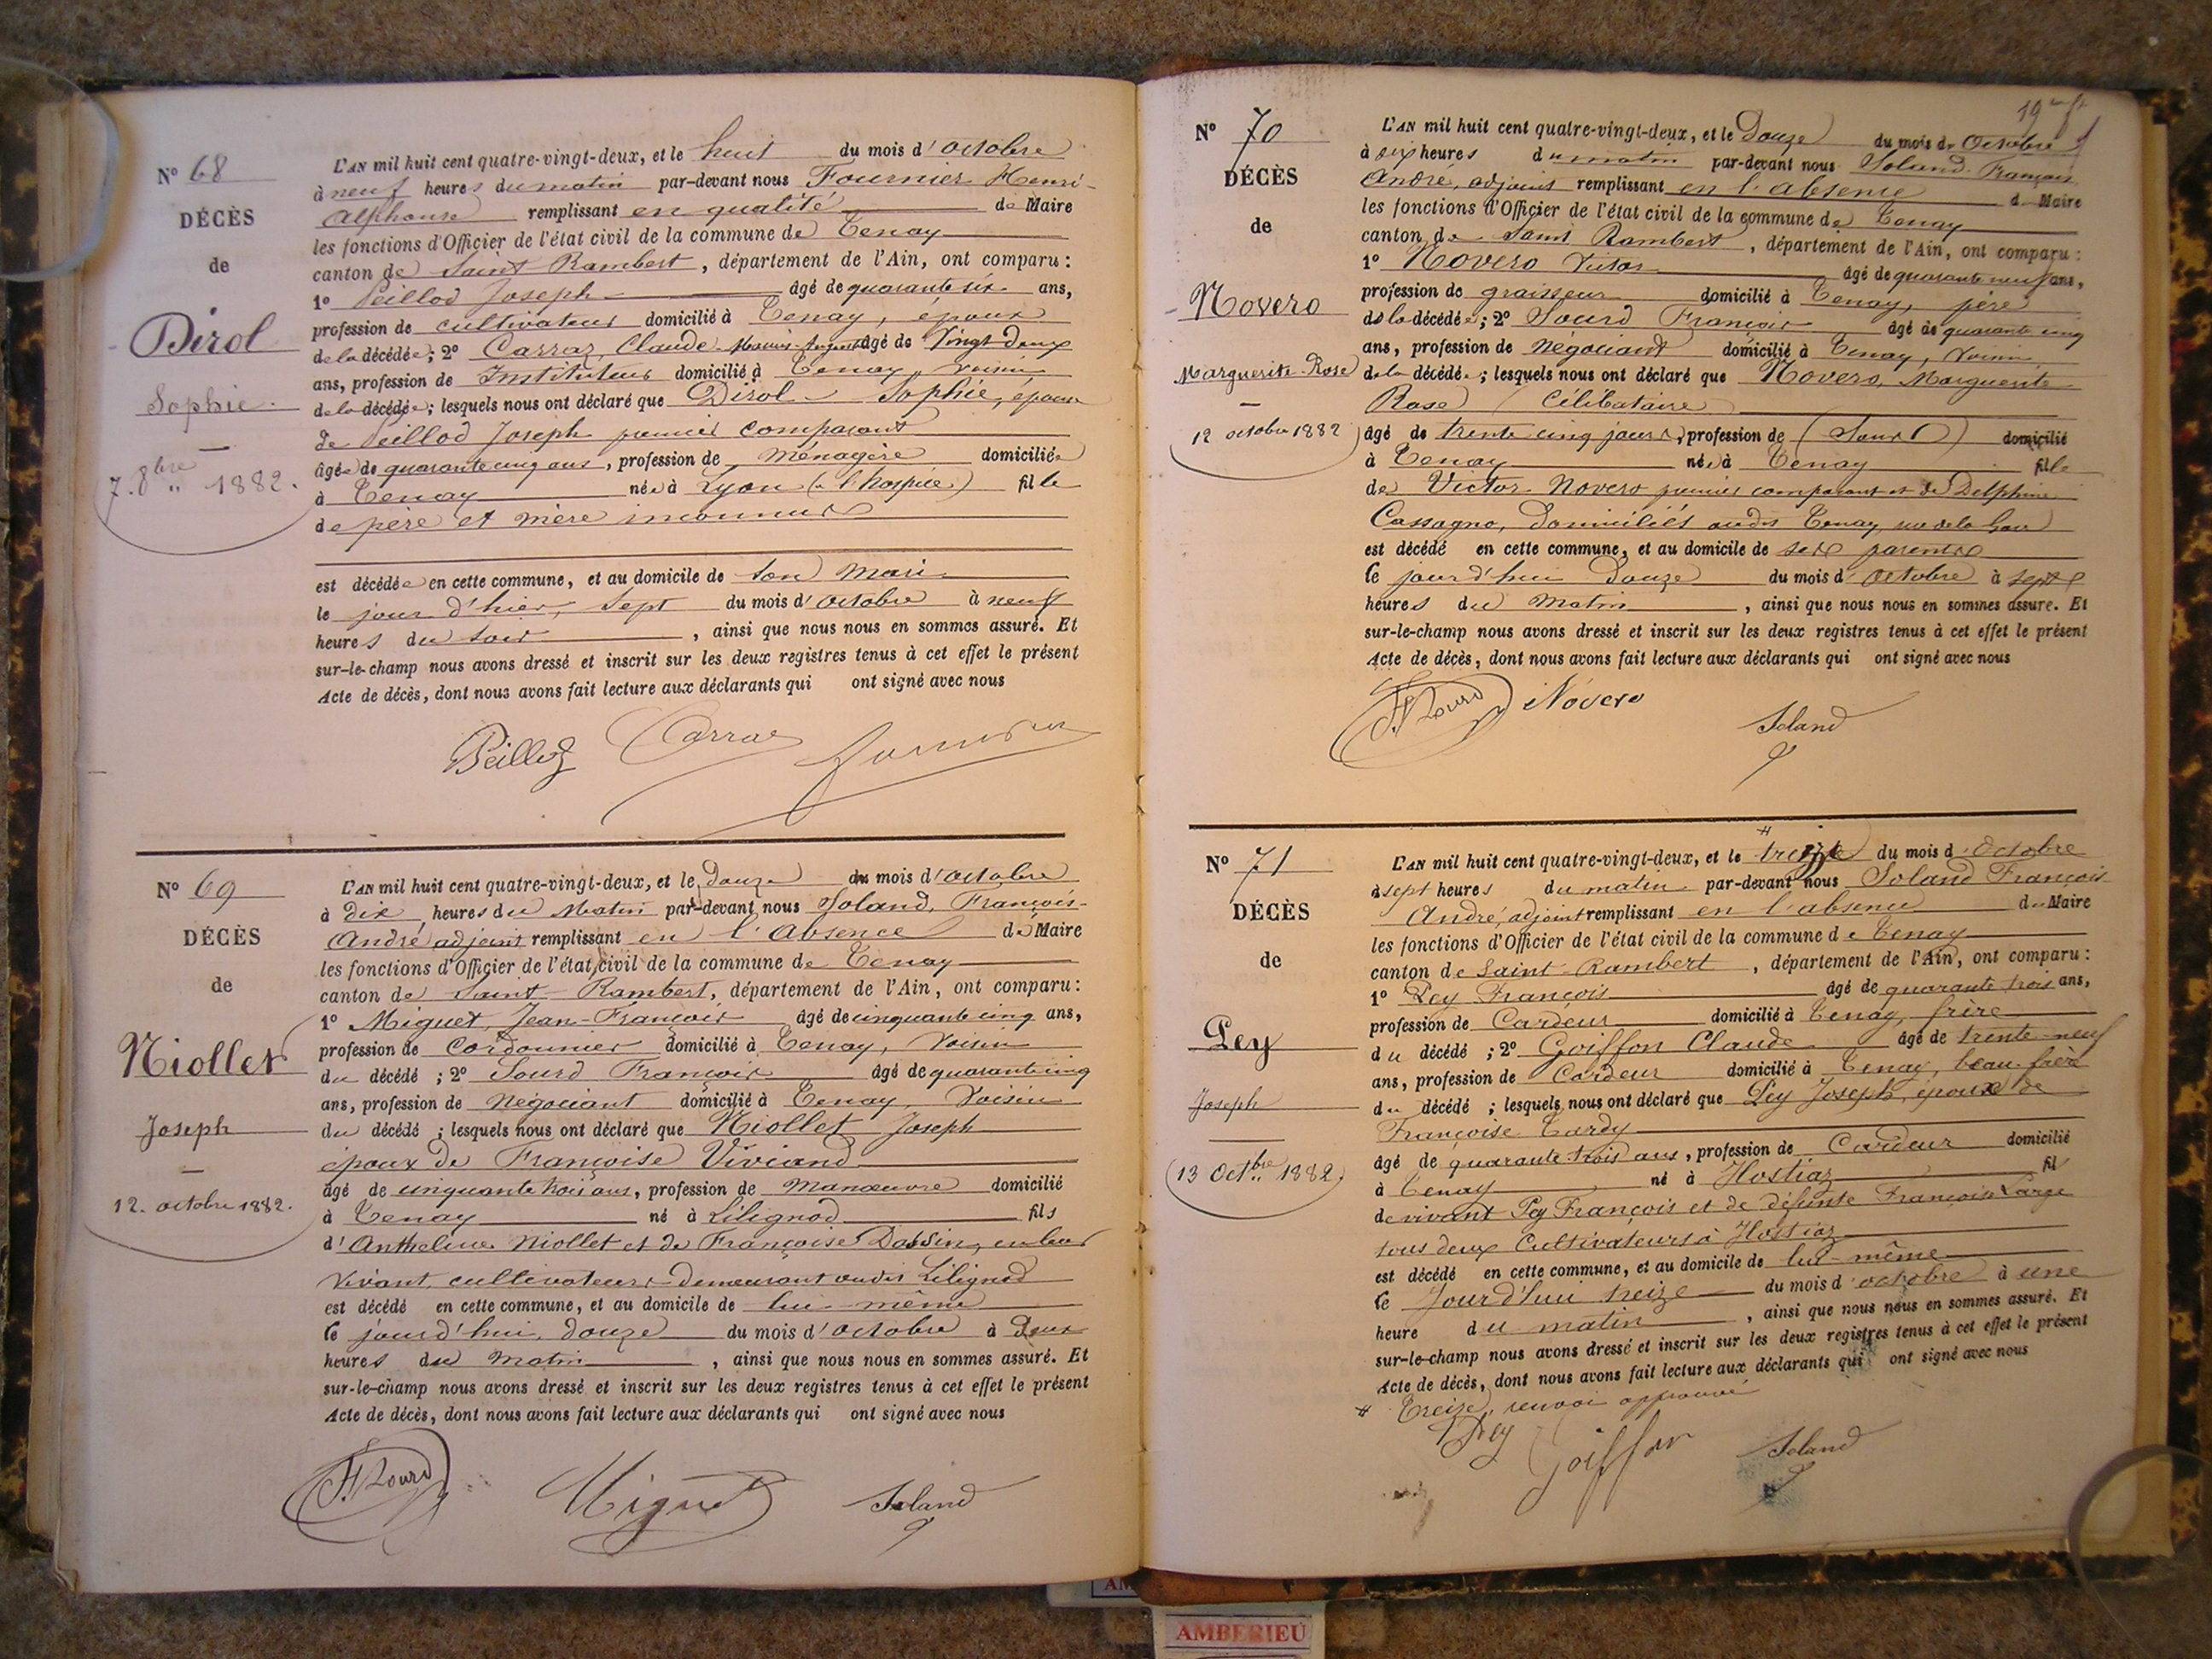 N° 68
DÉCÈS
de
Dirol
Sophie.
7. 8bre 1882.
L'AN mil huit cent quatre-vingt-deux, et le huit du mois d'octobre
à neuf heures du matin par-devant nous Fournier Henri-
Alphonse remplissant en qualité de Maire
les fonctions d'Officier de l'état civil de la commune de Tenay
canton de Saint Rambert, département de l'Ain, ont comparu :
1° Peillod Joseph âgé de quarante six ans,
profession de cultivateur domicilié à Tenay, époux
de la décédée ; 2° Carraz, Claude-Marius- âgé de Vingt-deux
ans, profession de Instituteur domicilié à Tenay, voisin
de la décédée ; lesquels nous ont déclaré que Dirol Sophie, épouse
de Peillod Joseph premier comparant
âgée de quarante cinq ans, profession de Ménagère domiciliée
à Tenay née à Lyon (à l'hospice) fille
de père et mère inconnus
est décédée en cette commune, et au domicile de son Mari
le jour d'hier, sept du mois d'octobre à neuf
heures du soir, ainsi que nous nous en sommes assuré. Et
sur-le-champ nous avons dressé et inscrit sur les deux registres tenus à cet effet le présent
Acte de décès, dont nous avons fait lecture aux déclarants qui ont signé avec nous
Peillod Carraz Fournier
N° 69
DÉCÈS
de
Niollet
Joseph
12. octobre 1882.
L'AN mil huit cent quatre-vingt-deux, et le douze du mois d'octobre
à dix heures du Matin par-devant nous Soland, François-
André adjoint remplissant en l'Absence du Maire
les fonctions d'Officier de l'état civil de la commune de Tenay
canton de Saint Rambert, département de l'Ain, ont comparu :
1° Miguet, Jean-François âgé de cinquante cinq ans,
profession de Cordonnier domicilié à Tenay, Voisin
du décédé ; 2° Sourd François âgé de quarante cinq
ans, profession de Négociant domicilié à Tenay, Voisin
du décédé ; lesquels nous ont déclaré que Niollet Joseph
époux de Françoise Viviand
âgé de cinquante trois ans, profession de Manœuvre domicilié
à Tenay né à Lilignod fils
d'Anthelme Niollet et de Françoise Dassin, en leur
vivant, cultivateurs demeurant audit Lilignod
est décédé en cette commune, et au domicile de lui-même
le jourd'hui, douze du mois d'octobre à Deux
heures du Matin, ainsi que nous nous en sommes assuré. Et
sur-le-champ nous avons dressé et inscrit sur les deux registres tenus à cet effet le présent
Acte de décès, dont nous avons fait lecture aux déclarants qui ont signé avec nous
F. Sourd Miguet Soland
N° 70
DÉCÈS
de
Novero
Marguerite-Rose
12 octobre 1882
L'AN mil huit cent quatre-vingt-deux, et le Douze du mois de Octobre
à dix heures du matin par-devant nous Soland François
André, adjoint remplissant en l'absence du Maire
les fonctions d'Officier de l'état civil de la commune de Tenay
canton de Saint Rambert, département de l'Ain, ont comparu :
1° Novero Victor âgé de quarante neuf ans,
profession de graisseur domicilié à Tenay, père
de la décédée ; 2° Sourd François âgé de quarante cinq
ans, profession de Négociant domicilié à Tenay, Voisin
de la décédée ; lesquels nous ont déclaré que Novero, Marguerite
Rose Célibataire
âgé de trente cinq jours, profession de (Sans) domicilié
à Tenay née à Tenay fille
de Victor Novero premier comparant et de Delphine
Cassagno, domiciliés audit Tenay, rue de la Gare
est décédé en cette commune, et au domicile de ses parents
le jourd'hui Douze du mois d'octobre à sept
heures du Matin, ainsi que nous nous en sommes assuré. Et
sur-le-champ nous avons dressé et inscrit sur les deux registres tenus à cet effet le présent
Acte de décès, dont nous avons fait lecture aux déclarants qui ont signé avec nous
F. Sourd Novero Soland
N° 71
DÉCÈS
de
Pey
Joseph
13 Octbre 1882.
L'AN mil huit cent quatre-vingt-deux, et le treize du mois d'Octobre
à sept heures du matin par-devant nous Soland François
André, adjoint remplissant en l'absence du Maire
les fonctions d'Officier de l'état civil de la commune de Tenay
canton de Saint-Rambert, département de l'Ain, ont comparu :
1° Pey François âgé de quarante trois ans,
profession de Cardeur domicilié à Tenay, frère
du décédé ; 2° Goiffon Claude âgé de trente-neuf
ans, profession de Cardeur domicilié à Tenay, beau-frère
du décédé ; lesquels nous ont déclaré que Pey Joseph, époux de
Françoise Tardy
âgé de quarante trois ans, profession de Cardeur domicilié
à Tenay né à Hostiaz fil
de vivant Pey François et de défunte Françoise Large
tous deux Cultivateurs à Hostiaz
est décédé en cette commune, et au domicile de lui-même
le Jourd'hui treize du mois d'octobre à une
heure du matin, ainsi que nous nous en sommes assuré. Et
sur-le-champ nous avons dressé et inscrit sur les deux registres tenus à cet effet le présent
Acte de décès, dont nous avons fait lecture aux déclarants qui ont signé avec nous
# Treize, renvoi approuvé
Pey Goiffon Soland
AMBERIEU